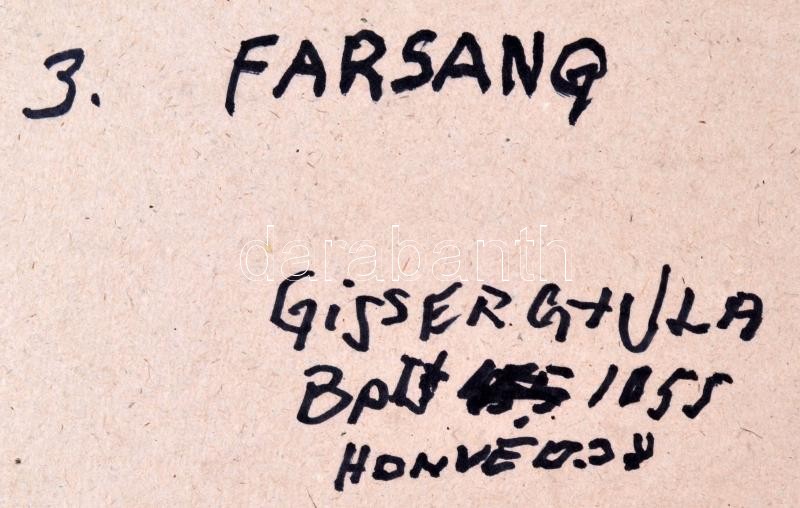 3. FARSANG
darabanth
GiSSER GYULA
Bpest 1055
HONVÉD.